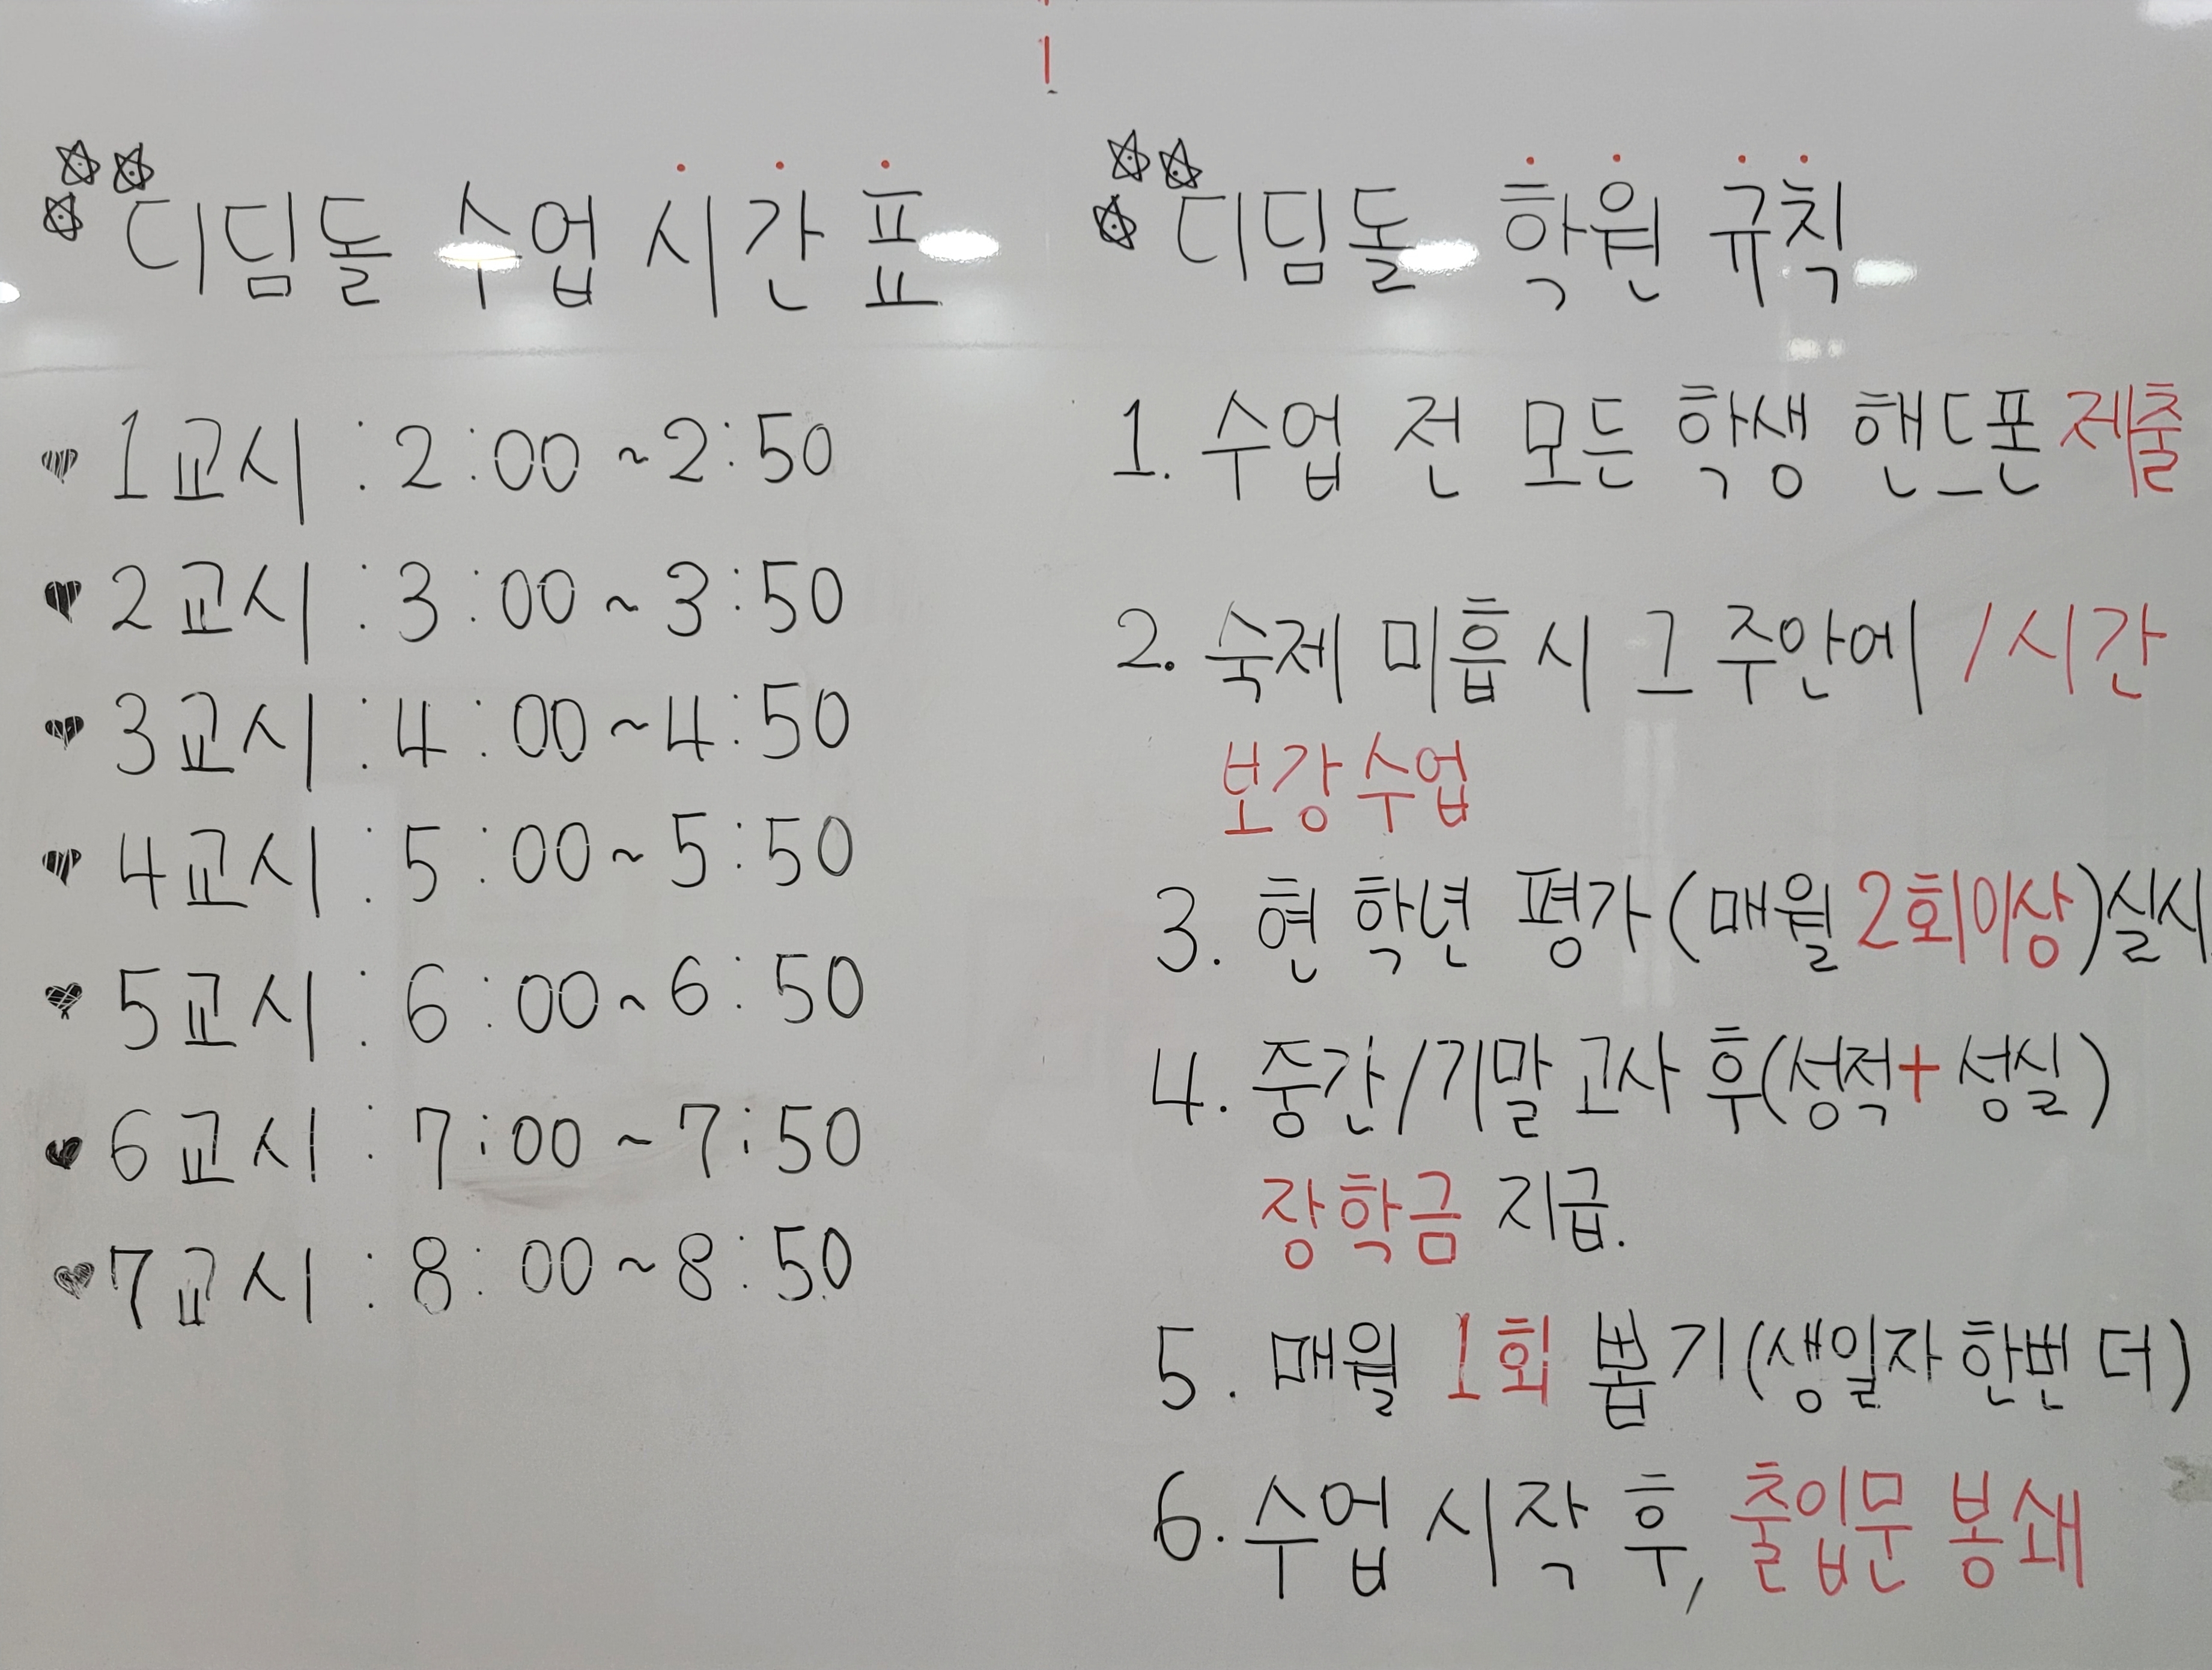 디딤돌 수업 시간표
1교시 : 2:00 ~ 2:50
2교시 : 3:00 ~ 3:50
3교시 : 4:00 ~ 4:50
4교시 : 5:00 ~ 5:50
5교시 : 6:00 ~ 6:50
6교시 : 7:00 ~ 7:50
7교시 : 8:00 ~ 8:50
디딤돌 학원 규칙
1. 수업 전 모든 학생 핸드폰 제출
2. 숙제 미흡시 그 주안에 1시간
보강수업
3. 현 학년 평가(매월 2회이상)실시
4. 중간/기말고사 후(성적+성실)
장학금 지급.
5. 매월 1회 뽑기(생일자 한번 더)
6. 수업 시작 후, 출입문 봉쇄